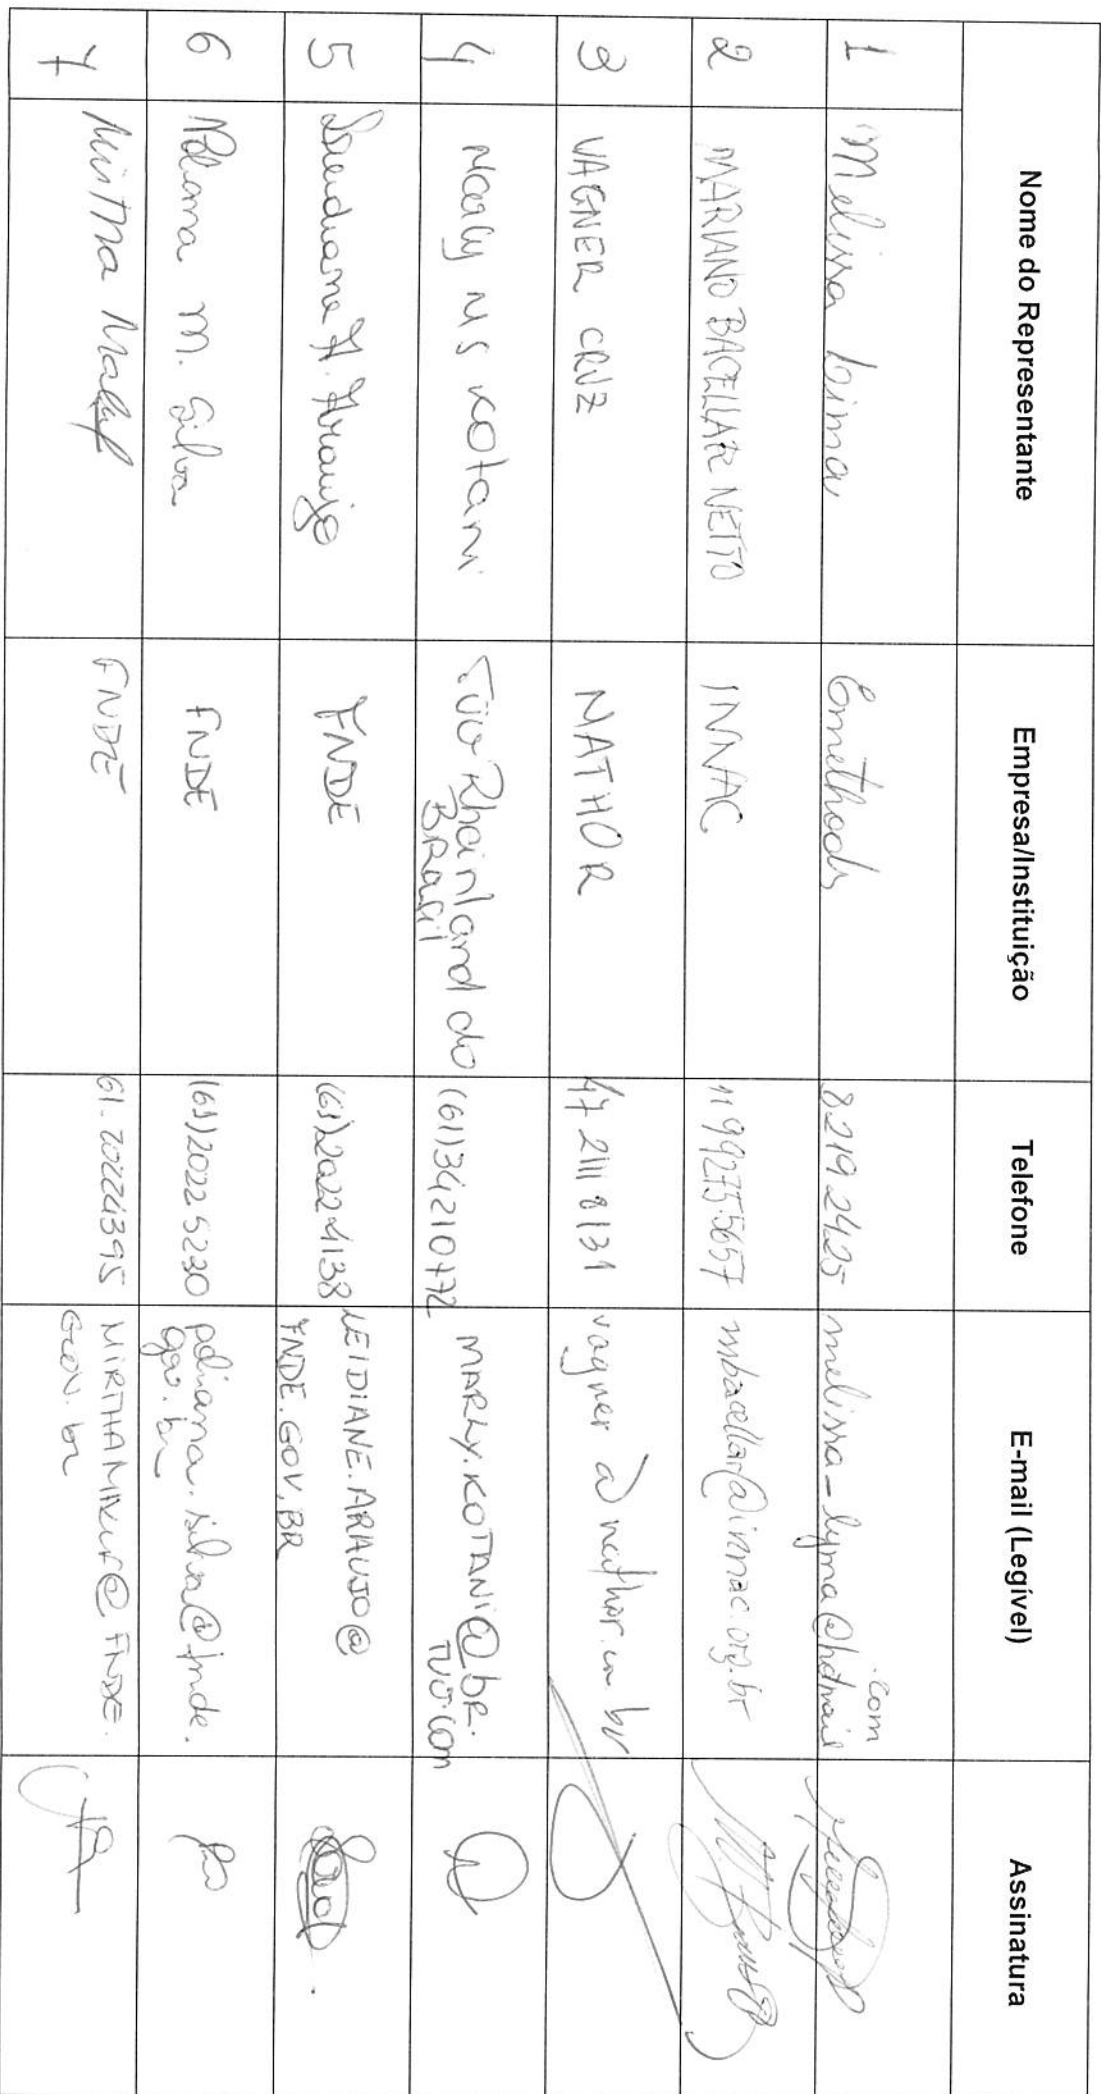 Nome do Representante Empresa/Instituição Telefone E-mail (Legível) Assinatura
1 Melissa Lima Emethods 82192425 melissa_lyma@hotmail
.com
2 MARIANO BACELLAR NETTO INNAC 11 992755657 mbacellar@innac.org.br
3 VAGNER CRUZ MATHOR 47 2111 8131
4 Marly M S Kotani TÜV Rheinland do (61)34210772 MARLY.KOTANI@br.
BRasil TUV.com
5 FNDE (61)20224138 LEIDIANE.ARAUJO@
FNDE.GOV.BR
6 Poliana M. Silva FNDE (61)20225230 poliana.silva@fnde.
gov.br
7 FNDE 61.20224395
GOV.br